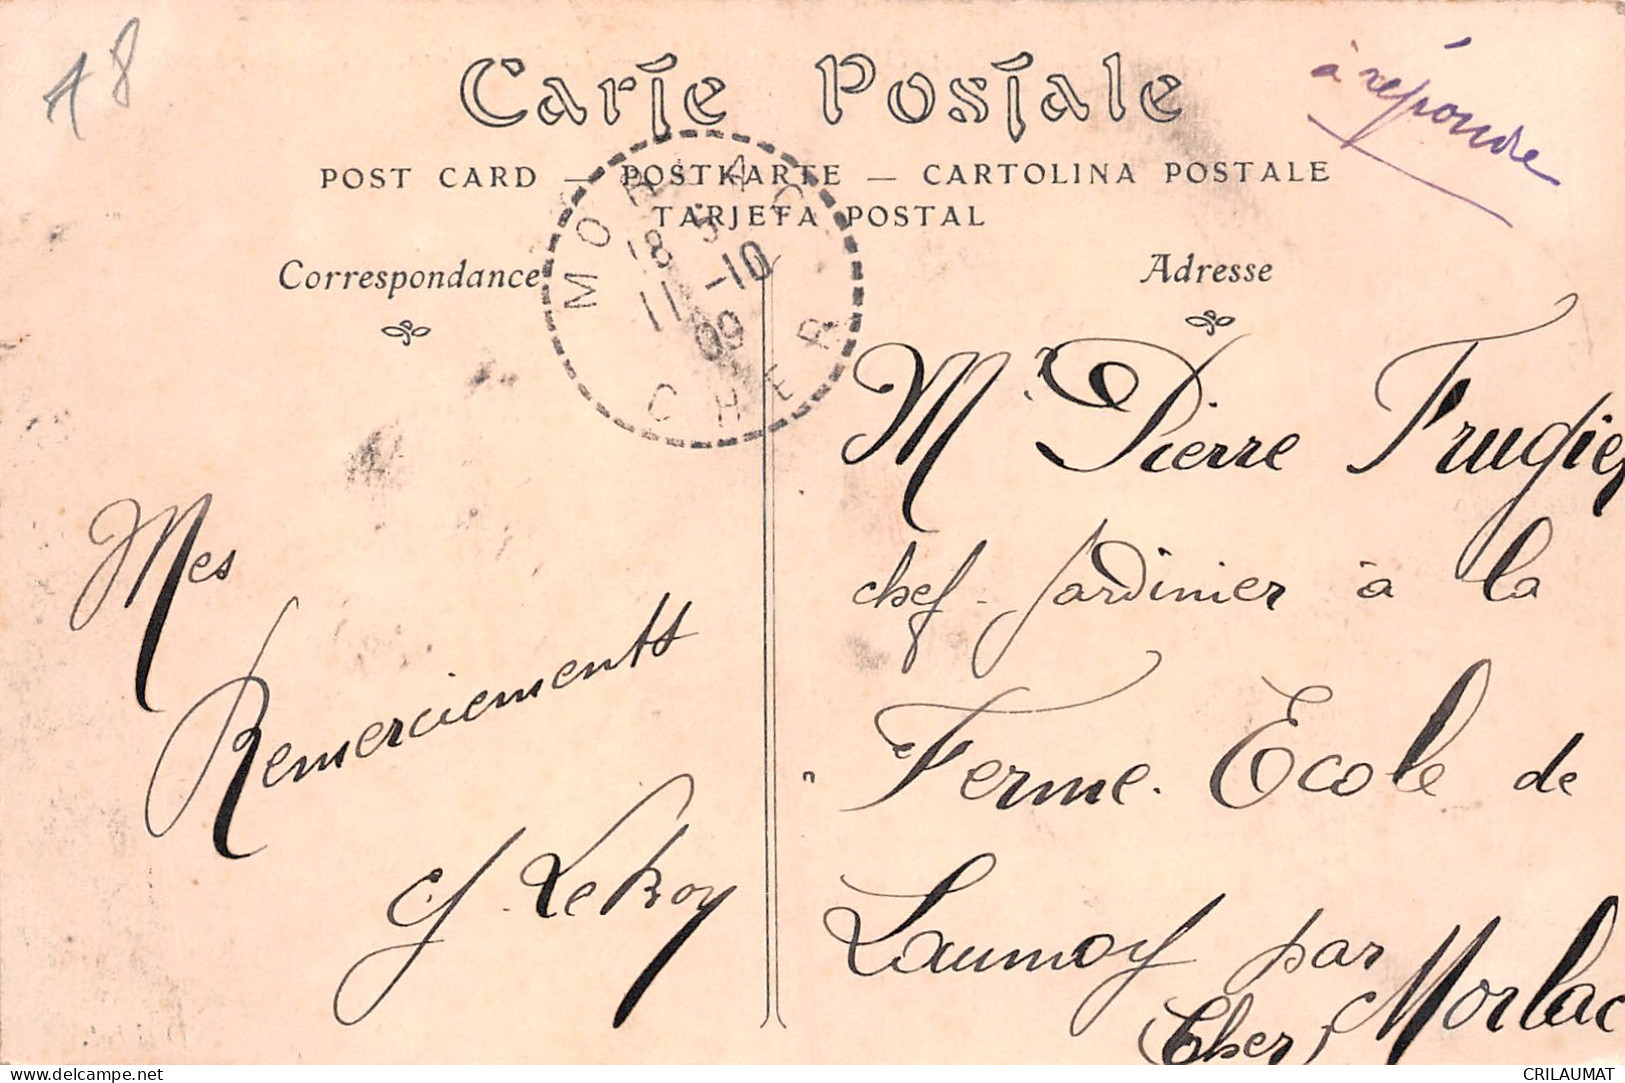 18
Carte Postale
à répondre
POST CARD — POSTKARTE — CARTOLINA POSTALE
TARJETA POSTAL
Correspondance
Adresse
MORLAC
18 5
11 -10
09
CHER
Mr Pierre Frugier
chef jardinier à la
Ferme. Ecole de
Launoy par Morlac
(Cher)
Mes
Remerciements
Leroy
delcampe.net
CRILAUMAT